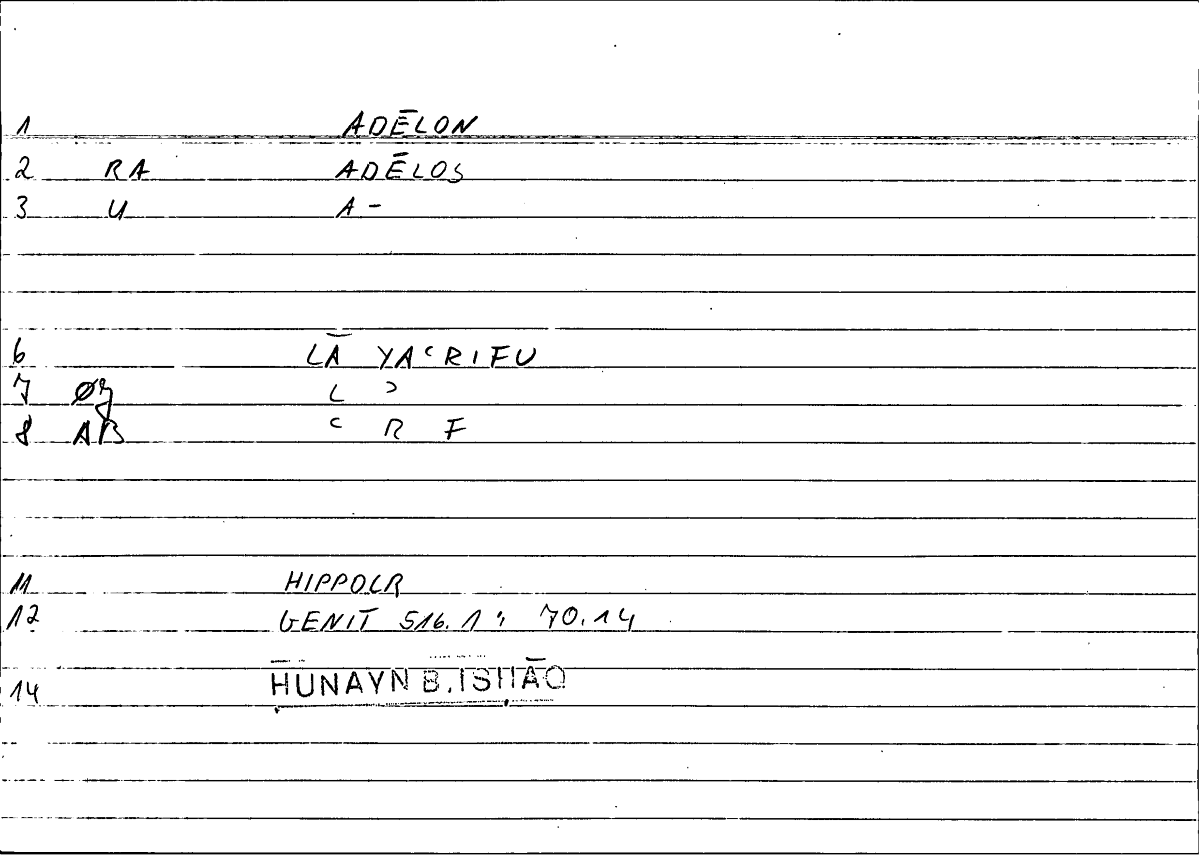 1 ADĒLON
2 RA ADĒLOS
3 U A-
6 LĀ YAʿRIFU
7 L ʾ
8 AB ʿ R F
11 HIPPOCR
12 GENIT 516.1; 70.14
14 HUNAYN B. ISHĀQ